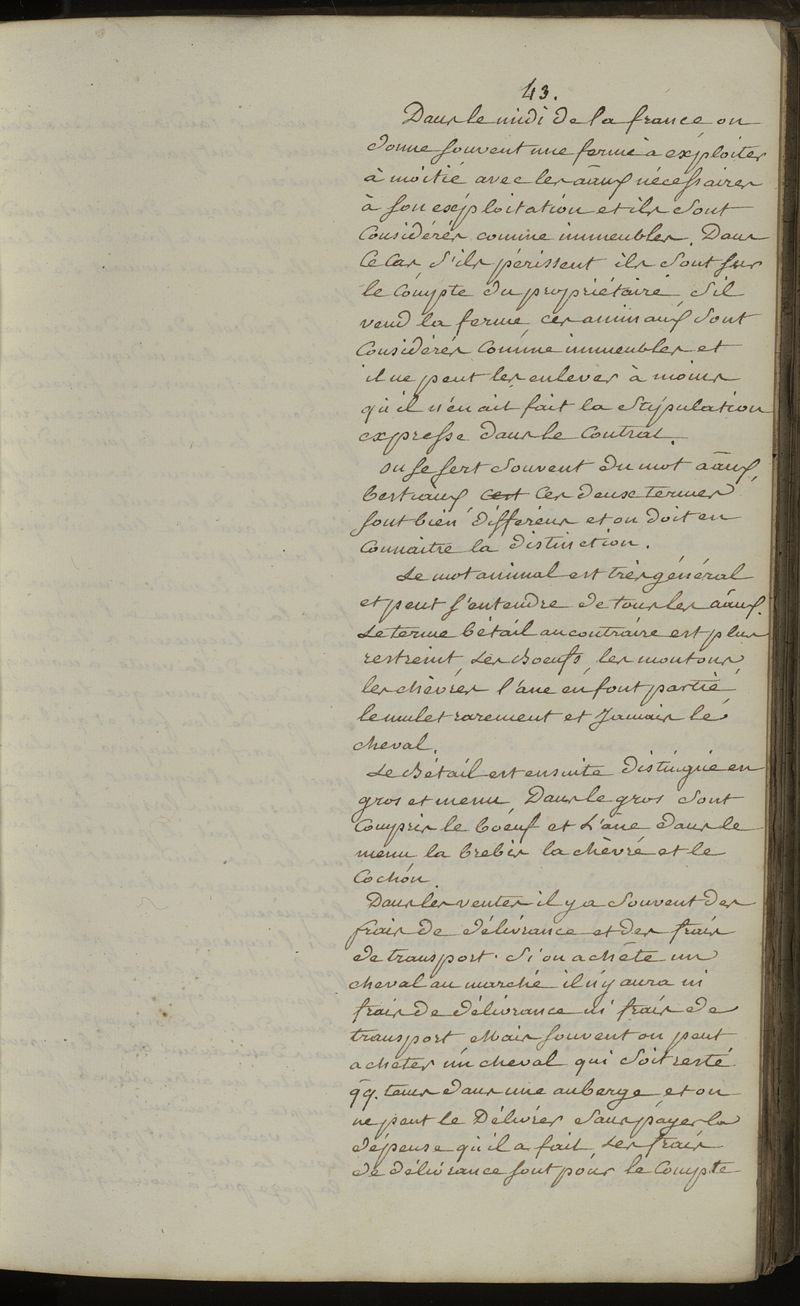 43.
Dans le midi de la france on
donne souvent une ferme à exploiter
à moitié avec les aãux nécessaires
à son exploitation et ils sont
Considérés comme immeubles. Dans
Ce Cas s'ils périssent ils sont sur
le Compte du propriétaire, s'il
vend la ferme, ces animaux sont
Considérés Comme immeubles et
il ne peut les enlever à moins
qu'il n'en ait fait la stipulation
expresse dans le Contrat.
on se sert souvent du mot aãux,
bestiaux ces deux termes
sont bien différens et on doit en
Connaitre la distinction.
Le mot animal est très général
et peut s'entendre de tous les aãux.
Le terme bétail au contraire est plus
restreint, Les Boeufs, les moutons,
les chèvres l'ane en font partie,
le mulet rarement et Jamais le
cheval.
Le Bétail est ensuite distingué en
gros et menu, Dans le gros sont
Compris le boeuf et L'âne dans le
menu la brebis la chèvre et le
Cochon.
Dans les ventes il y a souvent des
frais de délivrance et des frais
de transport. Si on achète un
cheval au marché il n'y aura ni
frais de délivrance ni frais de
transport Mais souvent on peut
acheter un cheval qui soit resté
qq. tems dans une auberge, et on
ne peut le Délivrer sans payer la
dépense qu'il a fait, Les frais
de délivrance sont pour le Compte